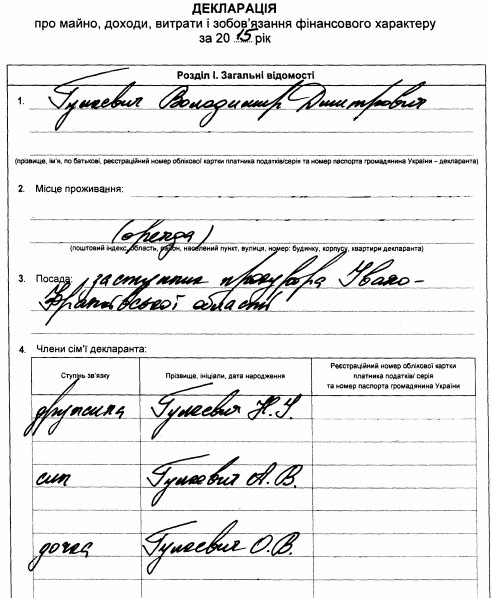 ДЕКЛАРАЦІЯ
про майно, доходи, витрати і зобов'язання фінансового характеру
за 2015 рік
Розділ І. Загальні відомості
1. Гулкевич Володимир Дмитрович
(прізвище, ім'я, по батькові, реєстраційний номер облікової картки платника податків/серія та номер паспорта громадянина України – декларанта)
2. Місце проживання:
(оренда)
(поштовий індекс, область, район, населений пункт, вулиця, номер: будинку, корпусу, квартири декларанта)
3. Посада: заступник прокурора Івано-
Франківської області
4. Члени сім'ї декларанта:
Ступінь зв'язку
Прізвище, ініціали, дата народження
Реєстраційний номер облікової картки
платника податків/ серія
та номер паспорта громадянина України
дружина Гулкевич Н.
син Гулкевич А. В.
дочка Гулкевич О. В.